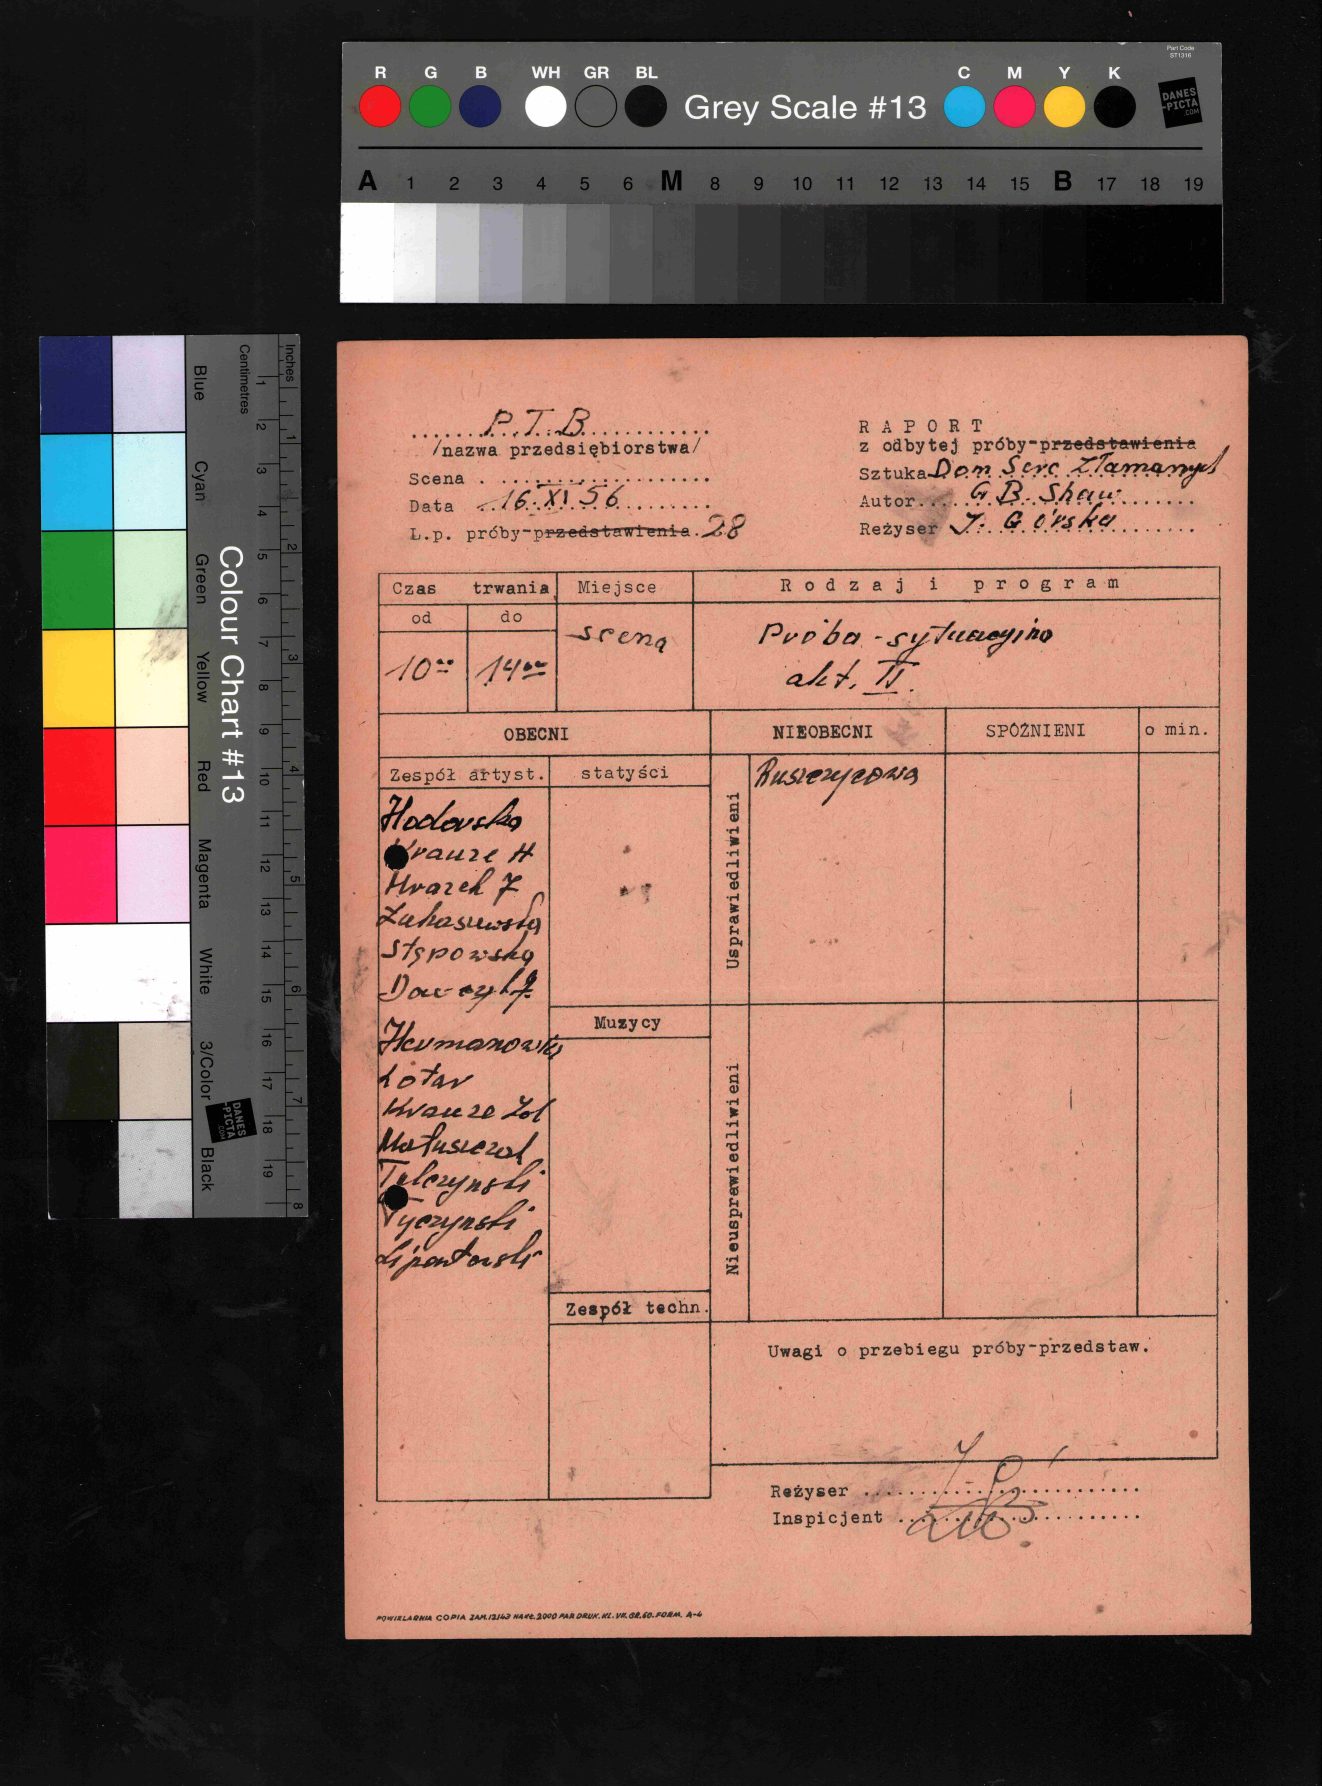 R G B WH GR BL Grey Scale #13 C M Y K
Part Code
ST1316
DANES
-PICTA
.COM
A 1 2 3 4 5 6 M 8 9 10 11 12 13 14 15 B 17 18 19
Colour Chart #13
Blue Cyan Green Yellow Red Magenta White 3/Color Black
Centimetres 1 2 3 4 5 6 7 8 9 10 11 12 13 14 15 16 17 18 19
Inches 1 2 3 4 5 6 7 8
DANES
-PICTA
.COM
P.T.B.
/nazwa przedsiębiorstwa/
Scena
Data 16.XI 56
L.p. próby-przedstawienia 28
RAPORT
z odbytej próby-przedstawienia
Sztuka Dom Serc Złamanych
Autor G. B. Shaw
Reżyser I. Górska
Czas trwania
od do
10°° 14°°
Miejsce
scena
Rodzaj i program
Próba - sytuacyjna
akt. II.
OBECNI
NIEOBECNI
SPÓŹNIENI
o min.
Zespół artyst.
statyści
Hodorska
Krauze H
Mrazek J
Łukaszewska
Stępowska
Hermanowicz
Lotar
Krauze Zof
Matuszczak
Tolczynski
Tyczynski
Lipartowski
Muzycy
Zespół techn.
Usprawiedliwieni
Ruszczycowa
Nieusprawiedliwieni
Uwagi o przebiegu próby-przedstaw.
Reżyser
Inspicjent
POWIELARNIA COPIA ZAM. 12143 NAKŁ. 2000 PAP. DRUK. KL. VII. GR. 60. FORM. A-4